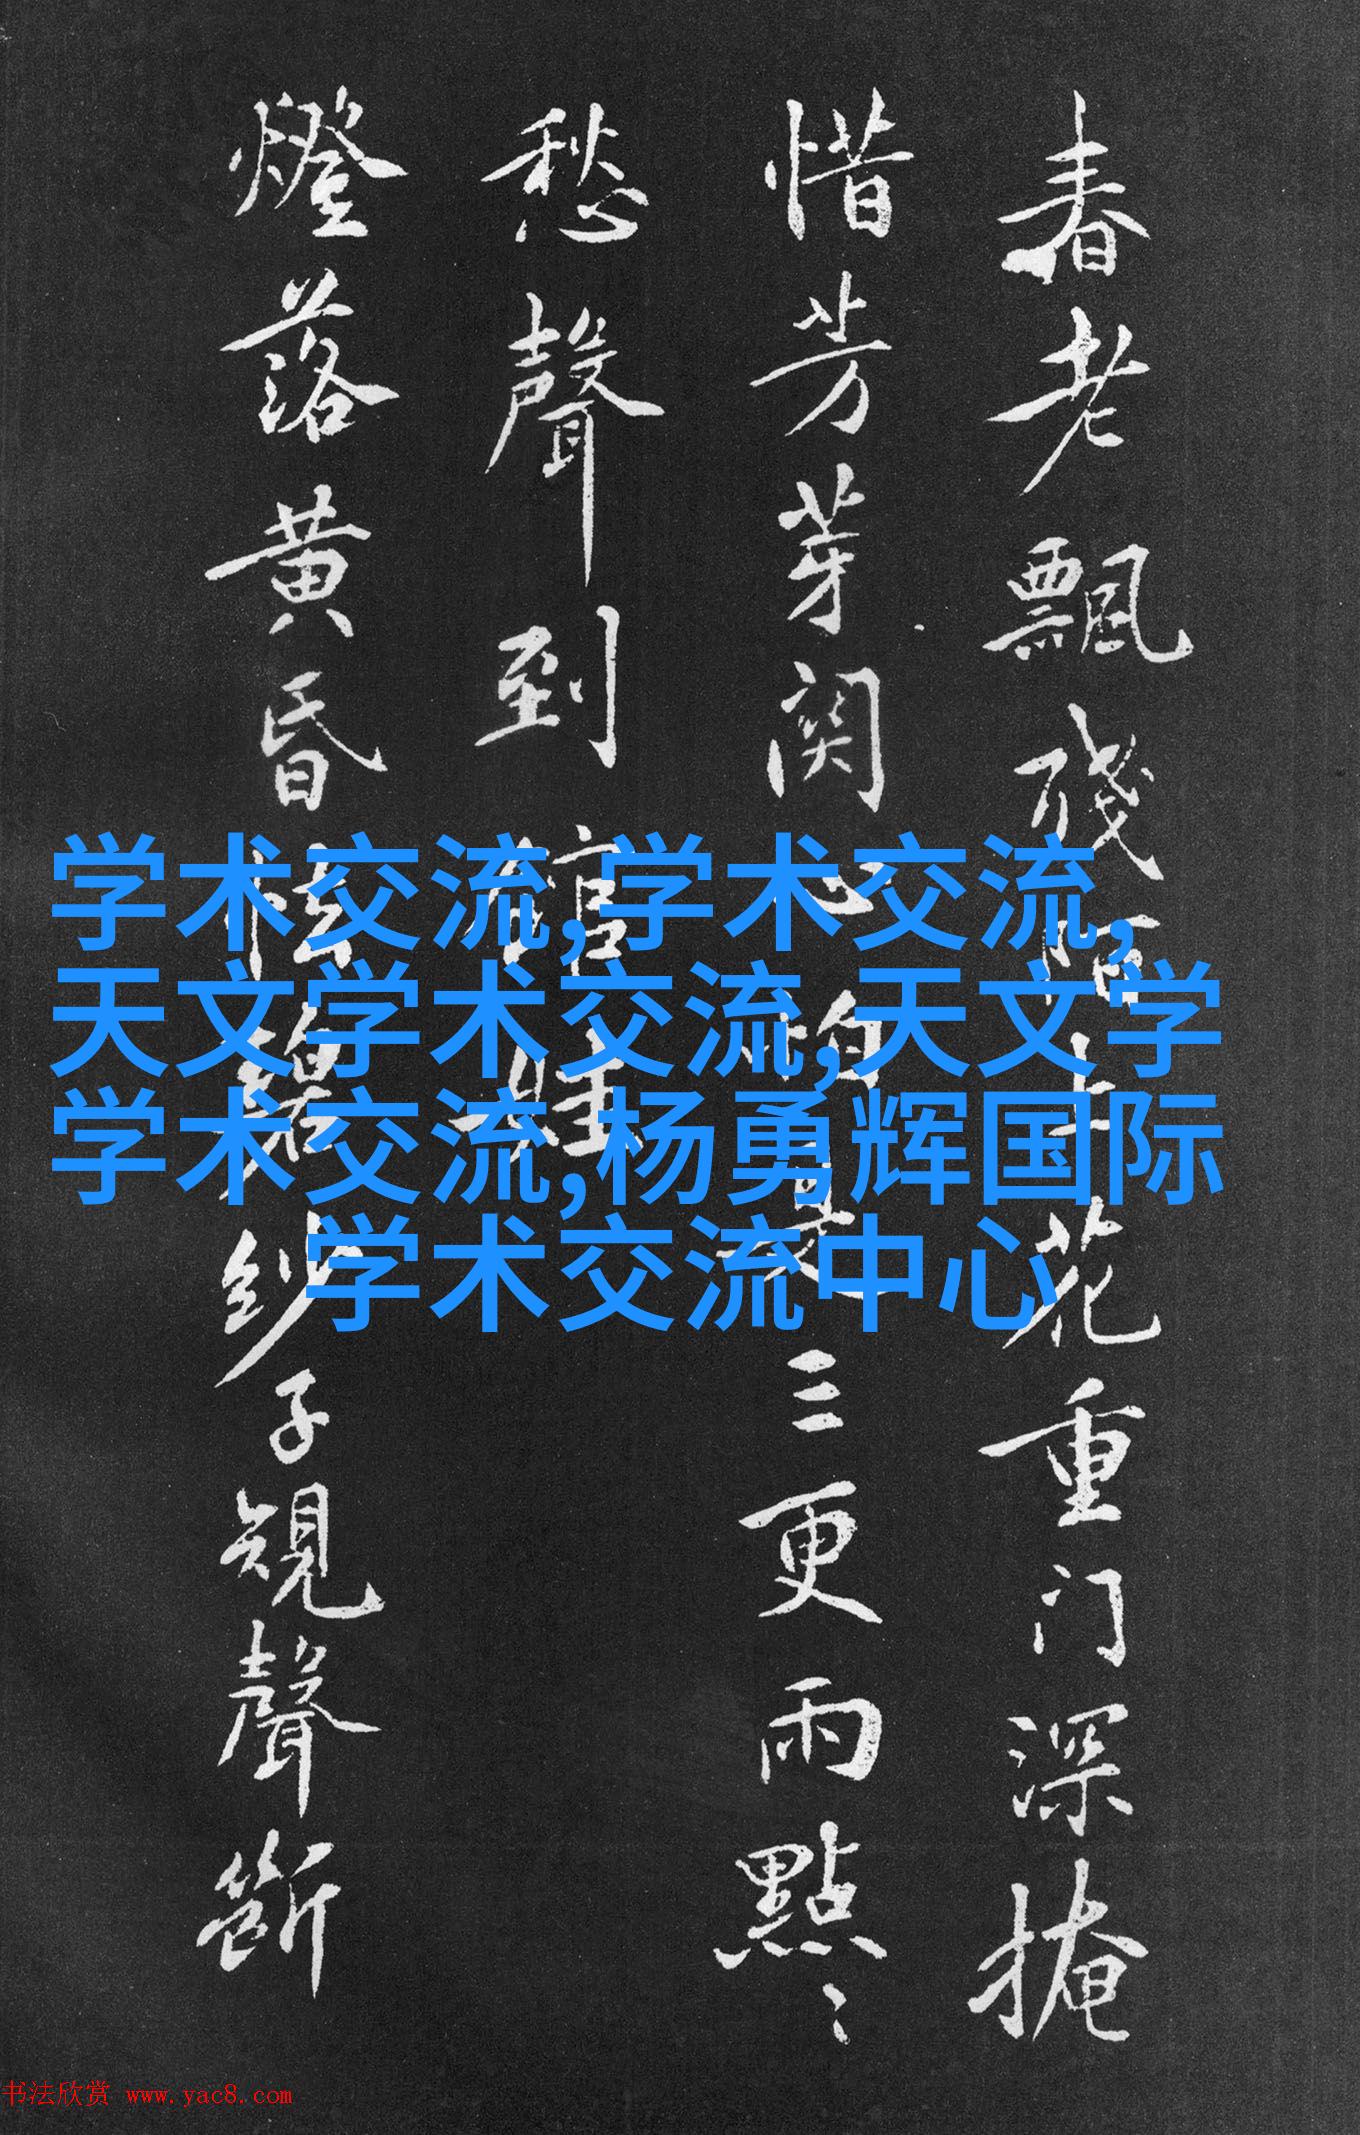 春老飄殘陌上花重门深掩
惜芳芽関心怕是三更雨點〻
愁聲到
燈落黄昏
紗子規聲斷
学术交流,学术交流,
天文学术交流,天文学
学术交流,杨勇辉国际
学术交流中心
书法欣赏 www.yac8.com